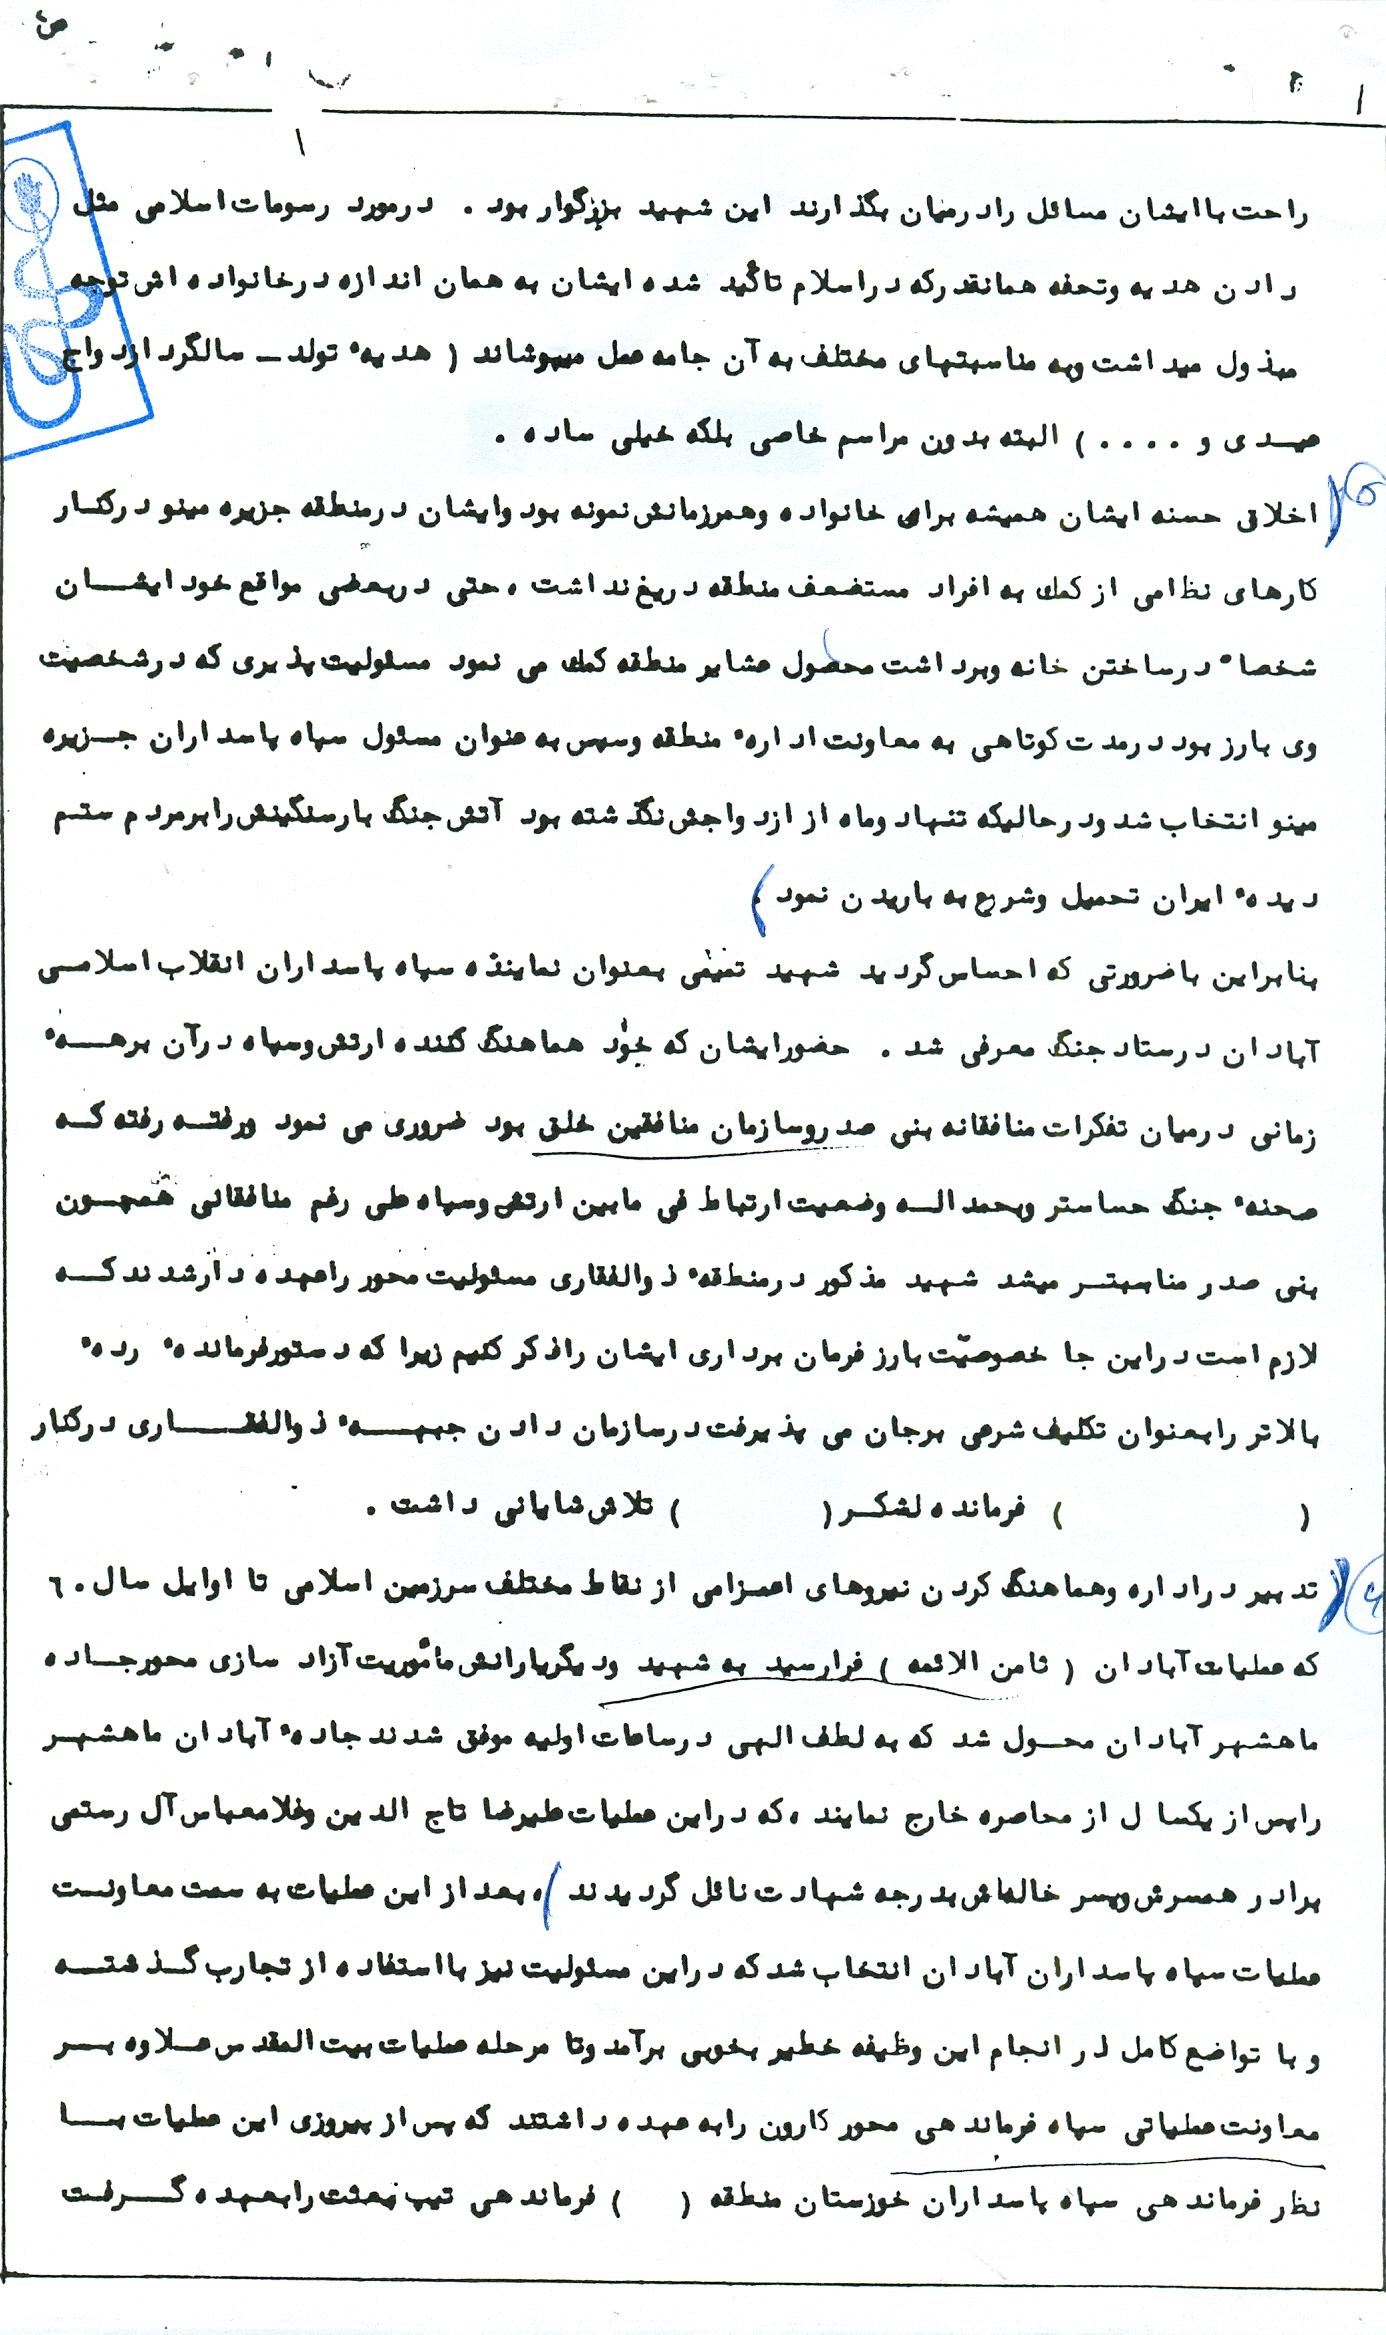 راحت با ایشان مسائل را درمیان بگذارند این شهید بزرگوار بود . درمورد رسومات اسلامی مثل
دادن هدیه وتحفه همانقدرکه دراسلام تاکید شده ایشان به همان اندازه درخانواده اش توجه
مبذول میداشت وبه مناسبتهای مختلف به آن جامه عمل میپوشاند ( هدیهٔ تولد ـ سالگرد ازدواج
عیدی و . . . . ) البته بدون مراسم خاصی بلکه خیلی ساده .
اخلاق حسنه ایشان همیشه برای خانواده وهمرزمانش نمونه بود وایشان درمنطقه جزیره مینو درکنار
کارهای نظامی از کمک به افراد مستضعف منطقه دریغ نداشت ، حتی دربعضی مواقع خود ایشان
شخصاء درساختن خانه وبرداشت محصول عشایر منطقه کمک می نمود مسئولیت پذیری که درشخصیت
وی بارز بود درمدت کوتاهی به معاونت ادارهٔ منطقه وسپس به عنوان مسئول سپاه پاسداران جزیره
مینو انتخاب شد ودرحالیکه تنها دوماه از ازدواجش نگذشته بود آتش جنگ بارسنگینش رابرمردم ستم
دیدهٔ ایران تحمیل وشروع به باریدن نمود .
بنابراین باضرورتی که احساس گردید شهید تعیقی بعنوان نماینده سپاه پاسداران انقلاب اسلامی
آبادان درستاد جنگ معرفی شد . حضورایشان که خود هماهنگ کننده ارتش وسپاه درآن برههٔ
زمانی درمیان تفکرات منافقانه بنی صدروسازمان منافقین خلق بود ضروری می نمود ورفته رفته که
صحنهٔ جنگ حساستر وبحمداله وضعیت ارتباط فی مابین ارتش وسپاه علی رغم منافقانی همچون
بنی صدر مناسبتر میشد شهید مذکور درمنطقهٔ ذوالفقاری مسئولیت محور راعهده دارشدند که
لازم است دراین جا خصوصیّت بارز فرمان برداری ایشان راذکر کنیم زیرا که دستورفرماندهٔ ردهٔ
بالاتر رابعنوان تکلیف شرعی برجان می پذیرفت درسازمان دادن جبههٔ ذوالفقاری درکنار
( ) فرمانده لشکر ( ) تلاش شایانی داشت .
تدبیر دراداره وهماهنگ کردن نیروهای اعزامی از نقاط مختلف سرزمین اسلامی تا اوایل سال ۶۰
که عملیات آبادان ( ثامن الائمه ) فرارسید به شهید ودیگریارانش مأموریت آزاد سازی محورجاده
ماهشهر آبادان محول شد که به لطف الهی درساعات اولیه موفق شدند جادهٔ آبادان ماهشهر
راپس از یکسال از محاصره خارج نمایند ، که دراین عملیات علیرضا تاج الدین وغلامعباس آل رستمی
برادر همسرش وپسر خالهاش بدرجه شهادت نائل گردیدند ، بعد از این عملیات به سمت معاونت
عملیات سپاه پاسداران آبادان انتخاب شد که دراین مسئولیت نیز بااستفاده از تجارب گذشته
و با تواضع کامل در انجام این وظیفه خطیر بخوبی برآمد وتا مرحله عملیات بیت المقدس علاوه بر
معاونت عملیاتی سپاه فرماندهی محور کارون رابه عهده داشتند که پس از پیروزی این عملیات با
نظر فرماندهی سپاه پاسداران خوزستان منطقه ( ) فرماندهی تیپ بعثت رابعهده گرفت